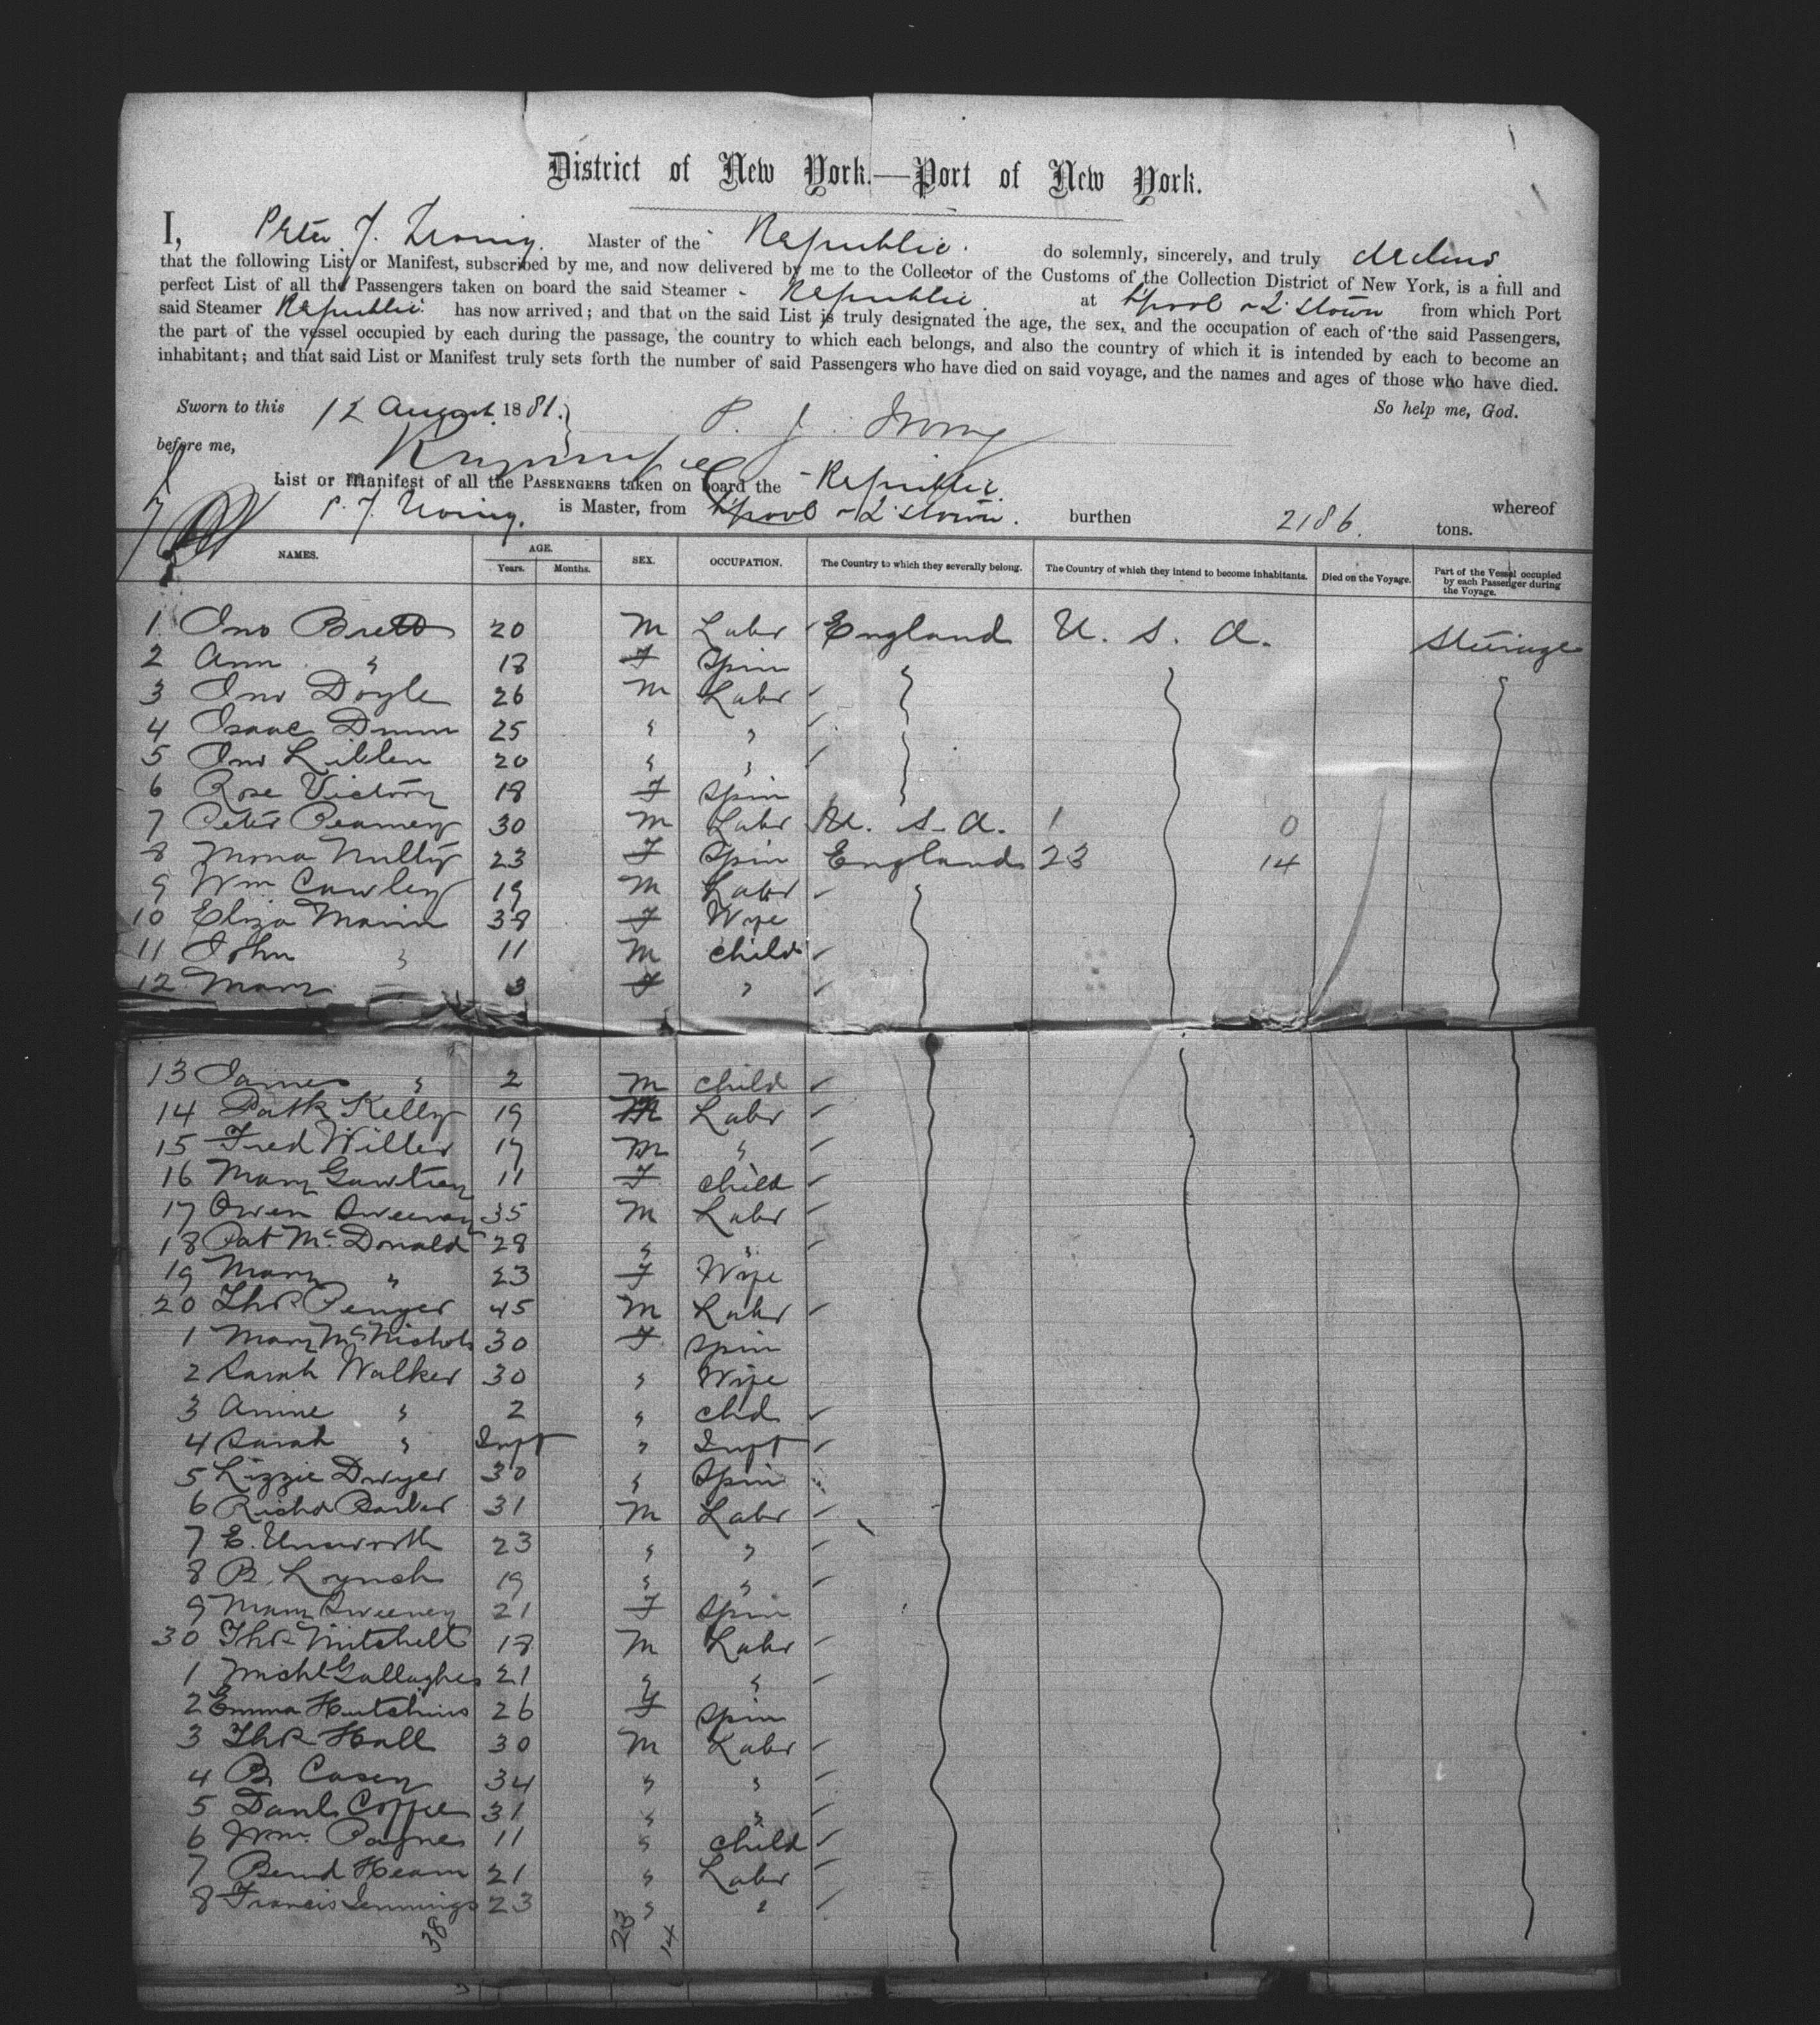 District of New York.—Port of New York.
I, Peter J. Irving. Master of the Republic. do solemnly, sincerely, and truly declare
that the following List or Manifest, subscribed by me, and now delivered by me to the Collector of the Customs of the Collection District of New York, is a full and
perfect List of all the Passengers taken on board the said Steamer - Republic. at L'pool & Q'stown from which Port
said Steamer Republic has now arrived; and that on the said List is truly designated the age, the sex, and the occupation of each of the said Passengers,
the part of the vessel occupied by each during the passage, the country to which each belongs, and also the country of which it is intended by each to become an
inhabitant; and that said List or Manifest truly sets forth the number of said Passengers who have died on said voyage, and the names and ages of those who have died.
Sworn to this 12 August 1881. So help me, God.
P. J. Irving
before me,
List or Manifest of all the PASSENGERS taken on board the Republic. whereof
P. J. Irving. is Master, from L'pool & Q'stown. burthen 2186. tons.
NAMES. AGE. Years. Months. SEX. OCCUPATION. The Country to which they severally belong. The Country of which they intend to become inhabitants. Died on the Voyage. Part of the Vessel occupied by each Passenger during the Voyage.
1 Jno Brett 20 M Labr England U. S. A. Steerage
2 Ann " 18 F Spin "
3 Jno Doyle 26 M Labr
4 Isaac Dunn 25 " "
5 Jno Lillen 20 " "
6 Rose Victory 18 F Spin
7 Peter Pearney 30 M Labr U. S. A. 1 0
8 Mona Nulty 23 F Spin England 23 14
9 Wm Cawley 19 M Labr
10 Eliza Mann 38 F Wife
11 John " 11 M child
12 Mary 3 F "
13 James " 2 M child
14 Patk Kelly 19 M Labr
15 Fred Willer 17 M "
16 Mary Gawtrey 11 F child
17 Owen Sweeney 35 M Labr
18 Pat McDonald 28 " "
19 Mary " 23 F Wife
20 Thos Penger 45 M Labr
1 Mary McNichols 30 F Spin
2 Sarah Walker 30 " Wife
3 Annie " 2 " chd
4 Sarah " Inft " Inft
5 Lizzie Dwyer 30 " Spin
6 Richd Barber 31 M Labr
7 E. Unsworth 23 " "
8 B. Lynch 19 " "
9 Mary Sweeney 21 F Spin
30 Thos Mitchell 18 M Labr
1 Michl Gallagher 21 " "
2 Emma Hutchins 26 F Spin
3 Thos Hall 30 M Labr
4 B Casey 34 " "
5 Danl Coffee 31 " "
6 Wm. Paynes 11 " child
7 Bernd Hearn 21 " Labr
8 Francis Jennings 23 " "
38 23 14